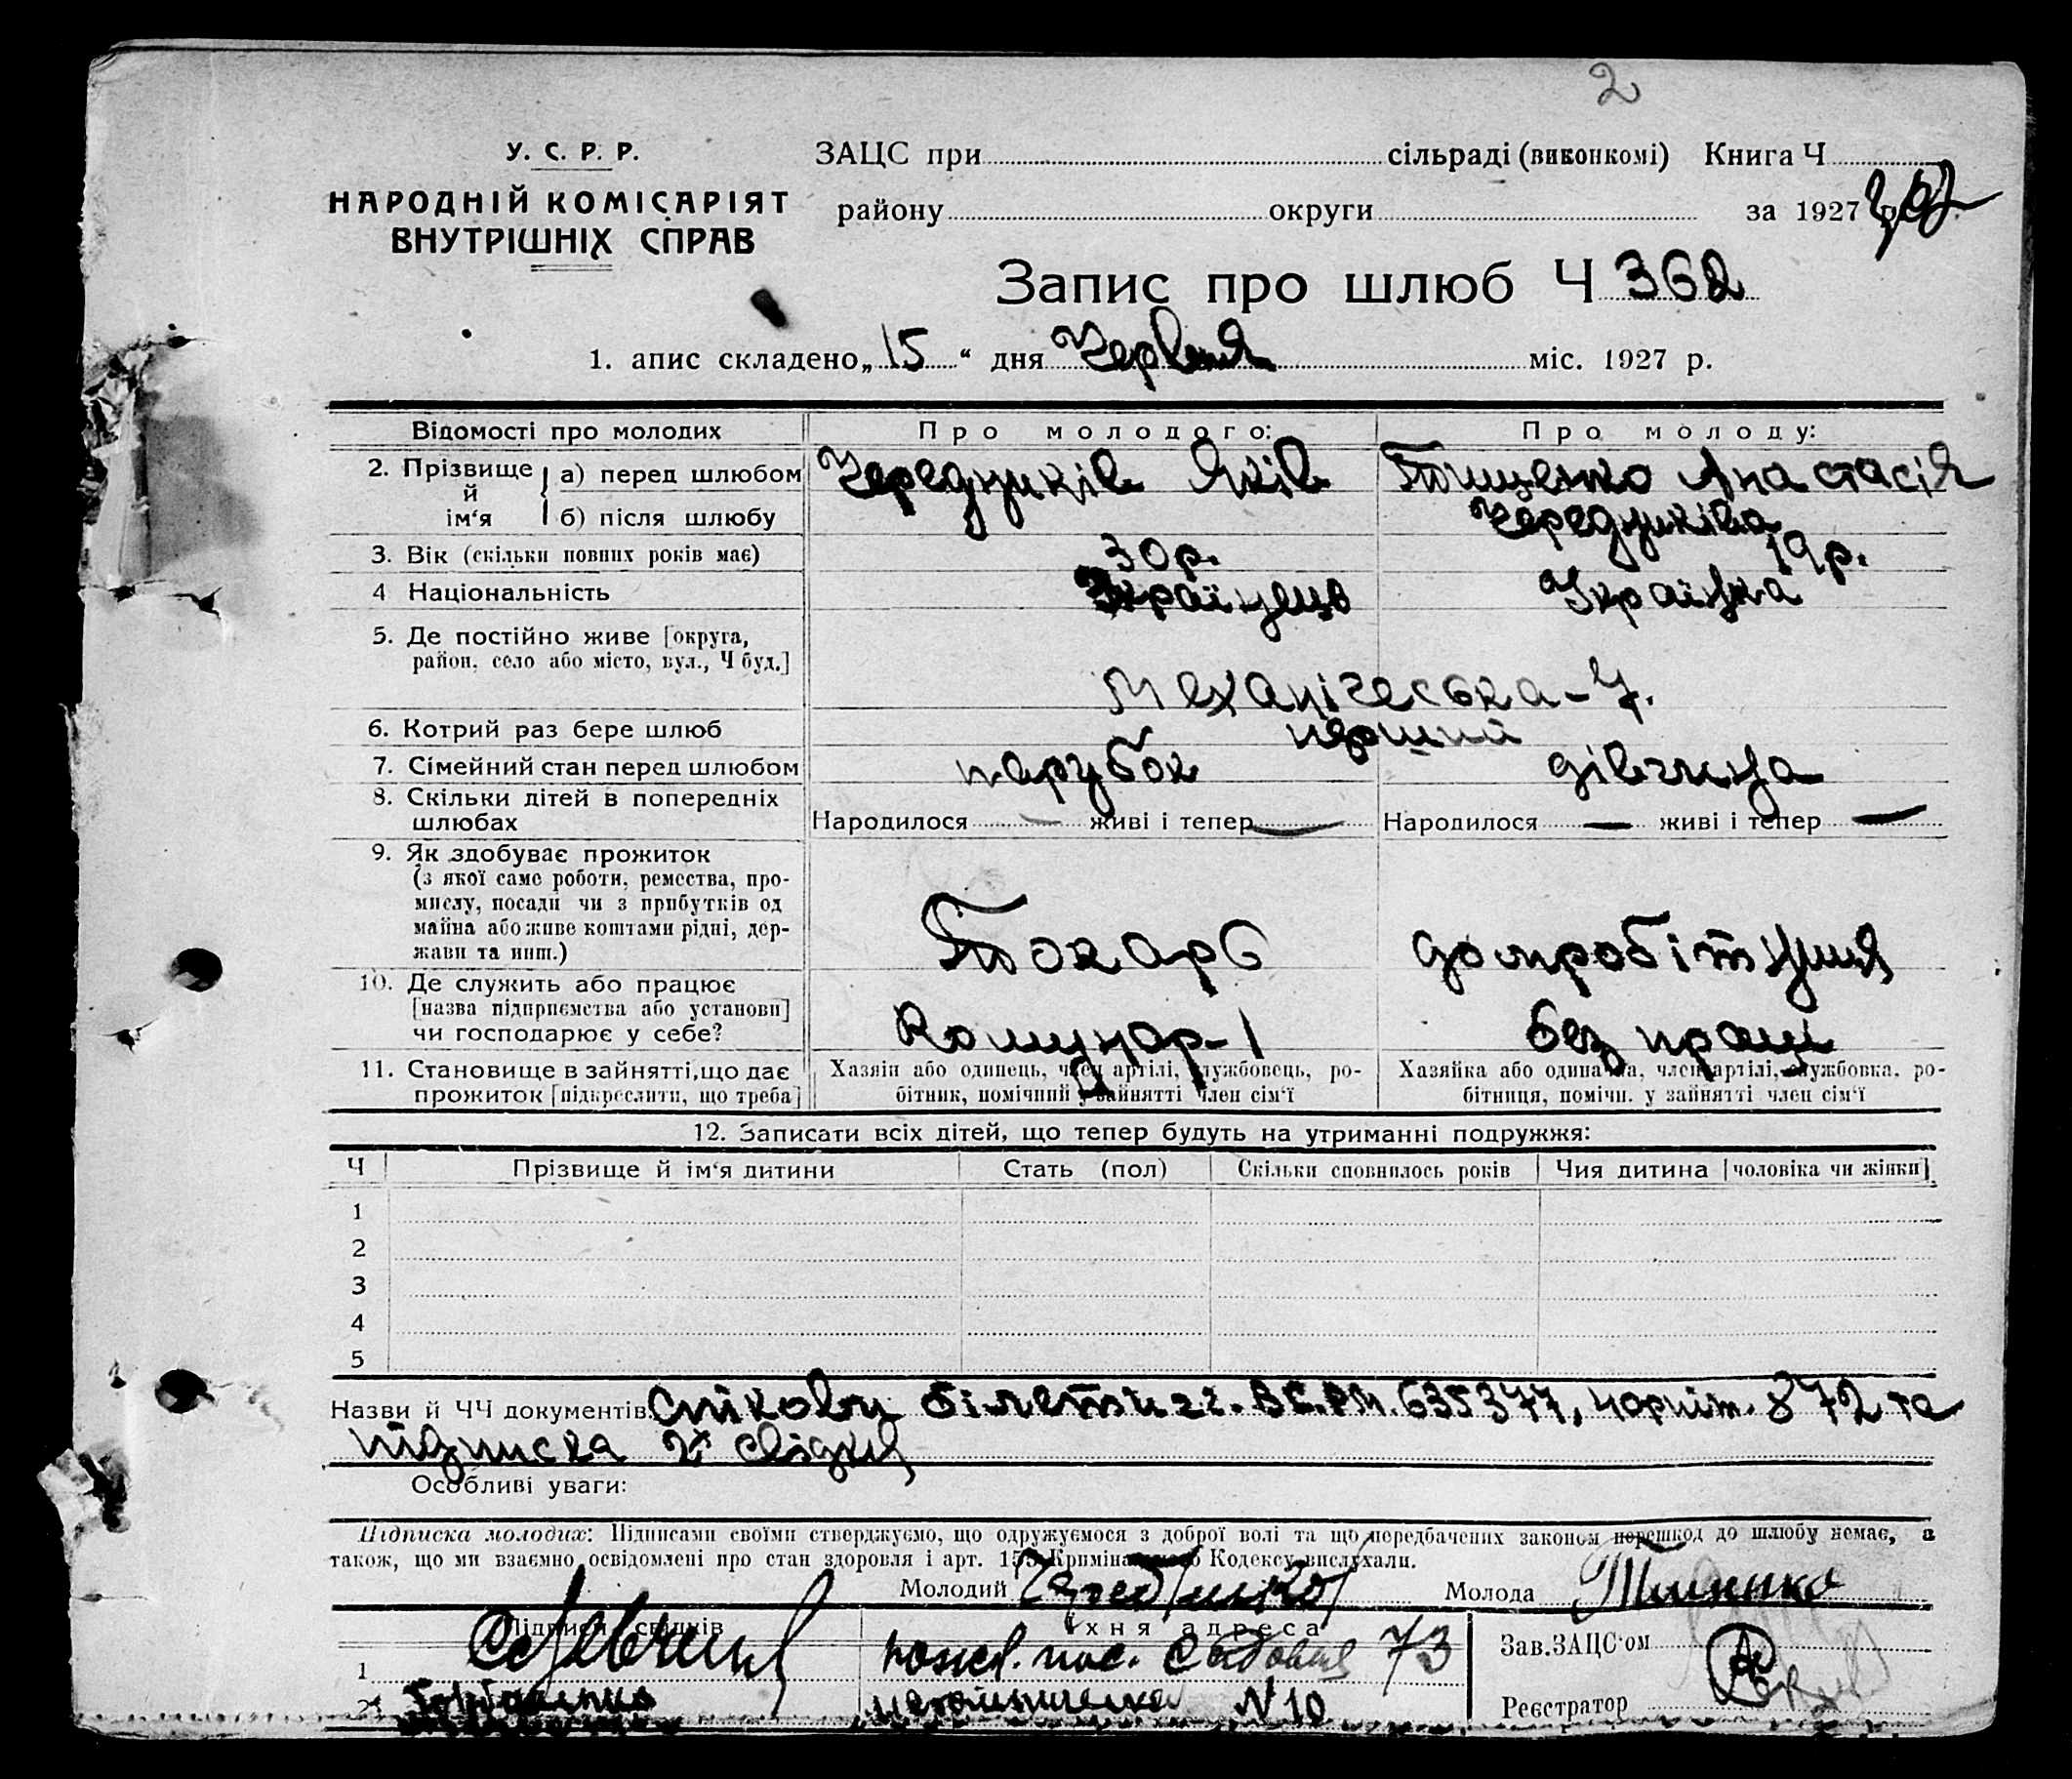 2
У. С. Р. Р.
НАРОДНІЙ КОМІСАРІЯТ
ВНУТРІШНІХ СПРАВ
ЗАЦС при сільраді (виконкомі) Книга Ч
району округи за 1927 р.
Запис про шлюб Ч 362
1. апис складено „15“ дня Червня міс. 1927 р.
Відомості про молодих Про молодого: Про молоду:
2. Прізвище й ім‘я а) перед шлюбом Чередників Яків Тищенко Анастасія
б) після шлюбу Чередниківа
3. Вік (скільки повних років має) 30 р. 19 р.
4 Національність Українець Українка
5. Де постійно живе [округа,
район, село або місто, вул., Ч буд.]
Механічеська-7.
6. Котрий раз бере шлюб перший
7. Сімейний стан перед шлюбом парубок дівчина
8. Скільки дітей в попередніх
шлюбах Народилося — живі і тепер — Народилося — живі і тепер —
9. Як здобуває прожиток
(з якої саме роботи, ремества, про-
мислу, посади чи з прибутків од
майна або живе коштами рідні, дер-
жави та инш.) Токарь домробітниця
10. Де служить або працює
[назва підприємства або установи]
чи господарює у себе? Комунар-1 без праці
11. Становище в зайнятті, що дає
прожиток [підкреслити, що треба]
Хазяїн або одинець, член артілі, службовець, ро-
бітник, помічний у зайнятті член сім‘ї
Хазяйка або одиначка, член артілі, службовка, ро-
бітниця, помічн. у зайнятті член сім‘ї
12. Записати всіх дітей, що тепер будуть на утриманні подружжя:
Ч Прізвище й ім‘я дитини Стать (пол) Скільки сповнилось років Чия дитина [чоловіка чи жінки]
1
2
3
4
5
Назви й ЧЧ документів Спілкови білети В.С.Р.М. 635377, 872 та
підписка 2х свідків
Особливі уваги:
Підписка молодих: Підписами своїми стверджуємо, що одружуємося з доброї волі та що передбачених законом перешкод до шлюбу немає, а
також, що ми взаємно освідомлені про стан здоровля і арт. 155 Кримінального Кодексу вислухали.
Молодий Молода Тищенко
Підписи свідків їхня адреса Зав. ЗАЦС‘ом
1 Садовая 73
2 № 10 Реєстратор